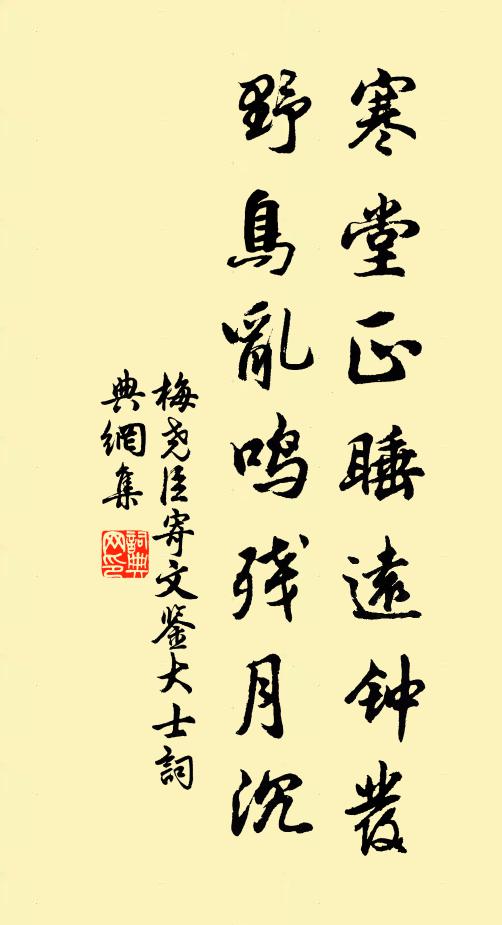 寒堂正睡遠钟發
野鳥亂鸣残月沉
梅尧臣寄文鉴大士詞
典網集
詞典网印